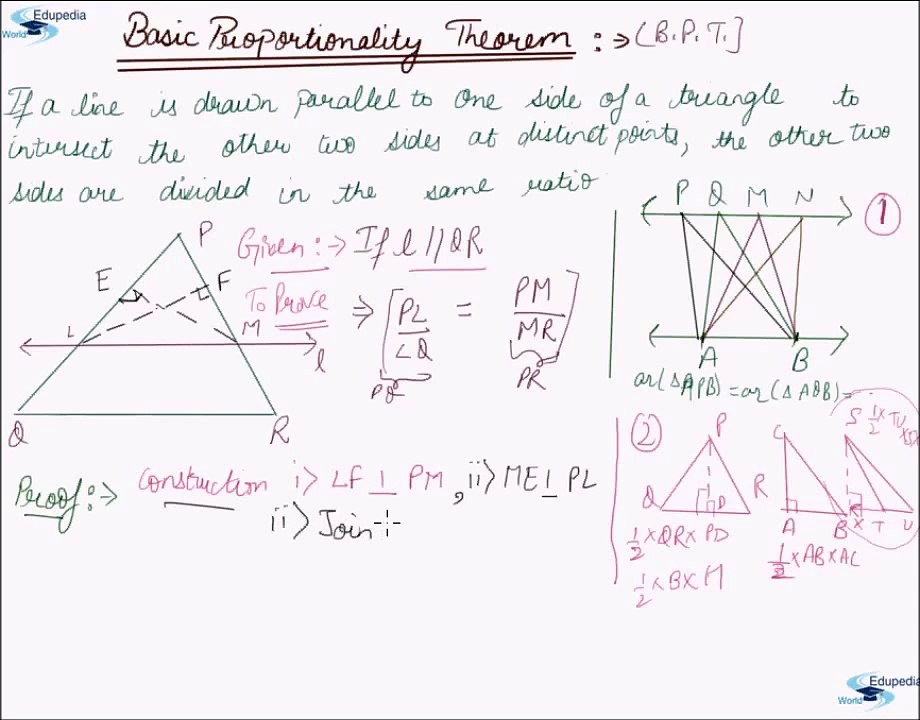 Edupedia
World
Basic Proportionality Theorem :→ (B.P.T.]
If a line is drawn parallel to one side of a triangle to
intersect the other two sides at distinct points, the other two
sides are divided in the same ratio
P
E
F
L
M
l
Q
R
Given :→ If l // QR
To Prove ⇒ [PL/LQ = PM/MR]
PQ
PR
P Q M N
1
A B
ar(ΔAPB) = ar(ΔAQB) =
2
P
Q
D
R
1/2 × QR × PD
1/2 × B × H
C
A
B
1/2 × AB × AC
S
1/2 × TU × SX
X T U
Proof :→ Construction i> LF ⊥ PM, ii> ME ⊥ PL
ii> Join
Edupedia
World